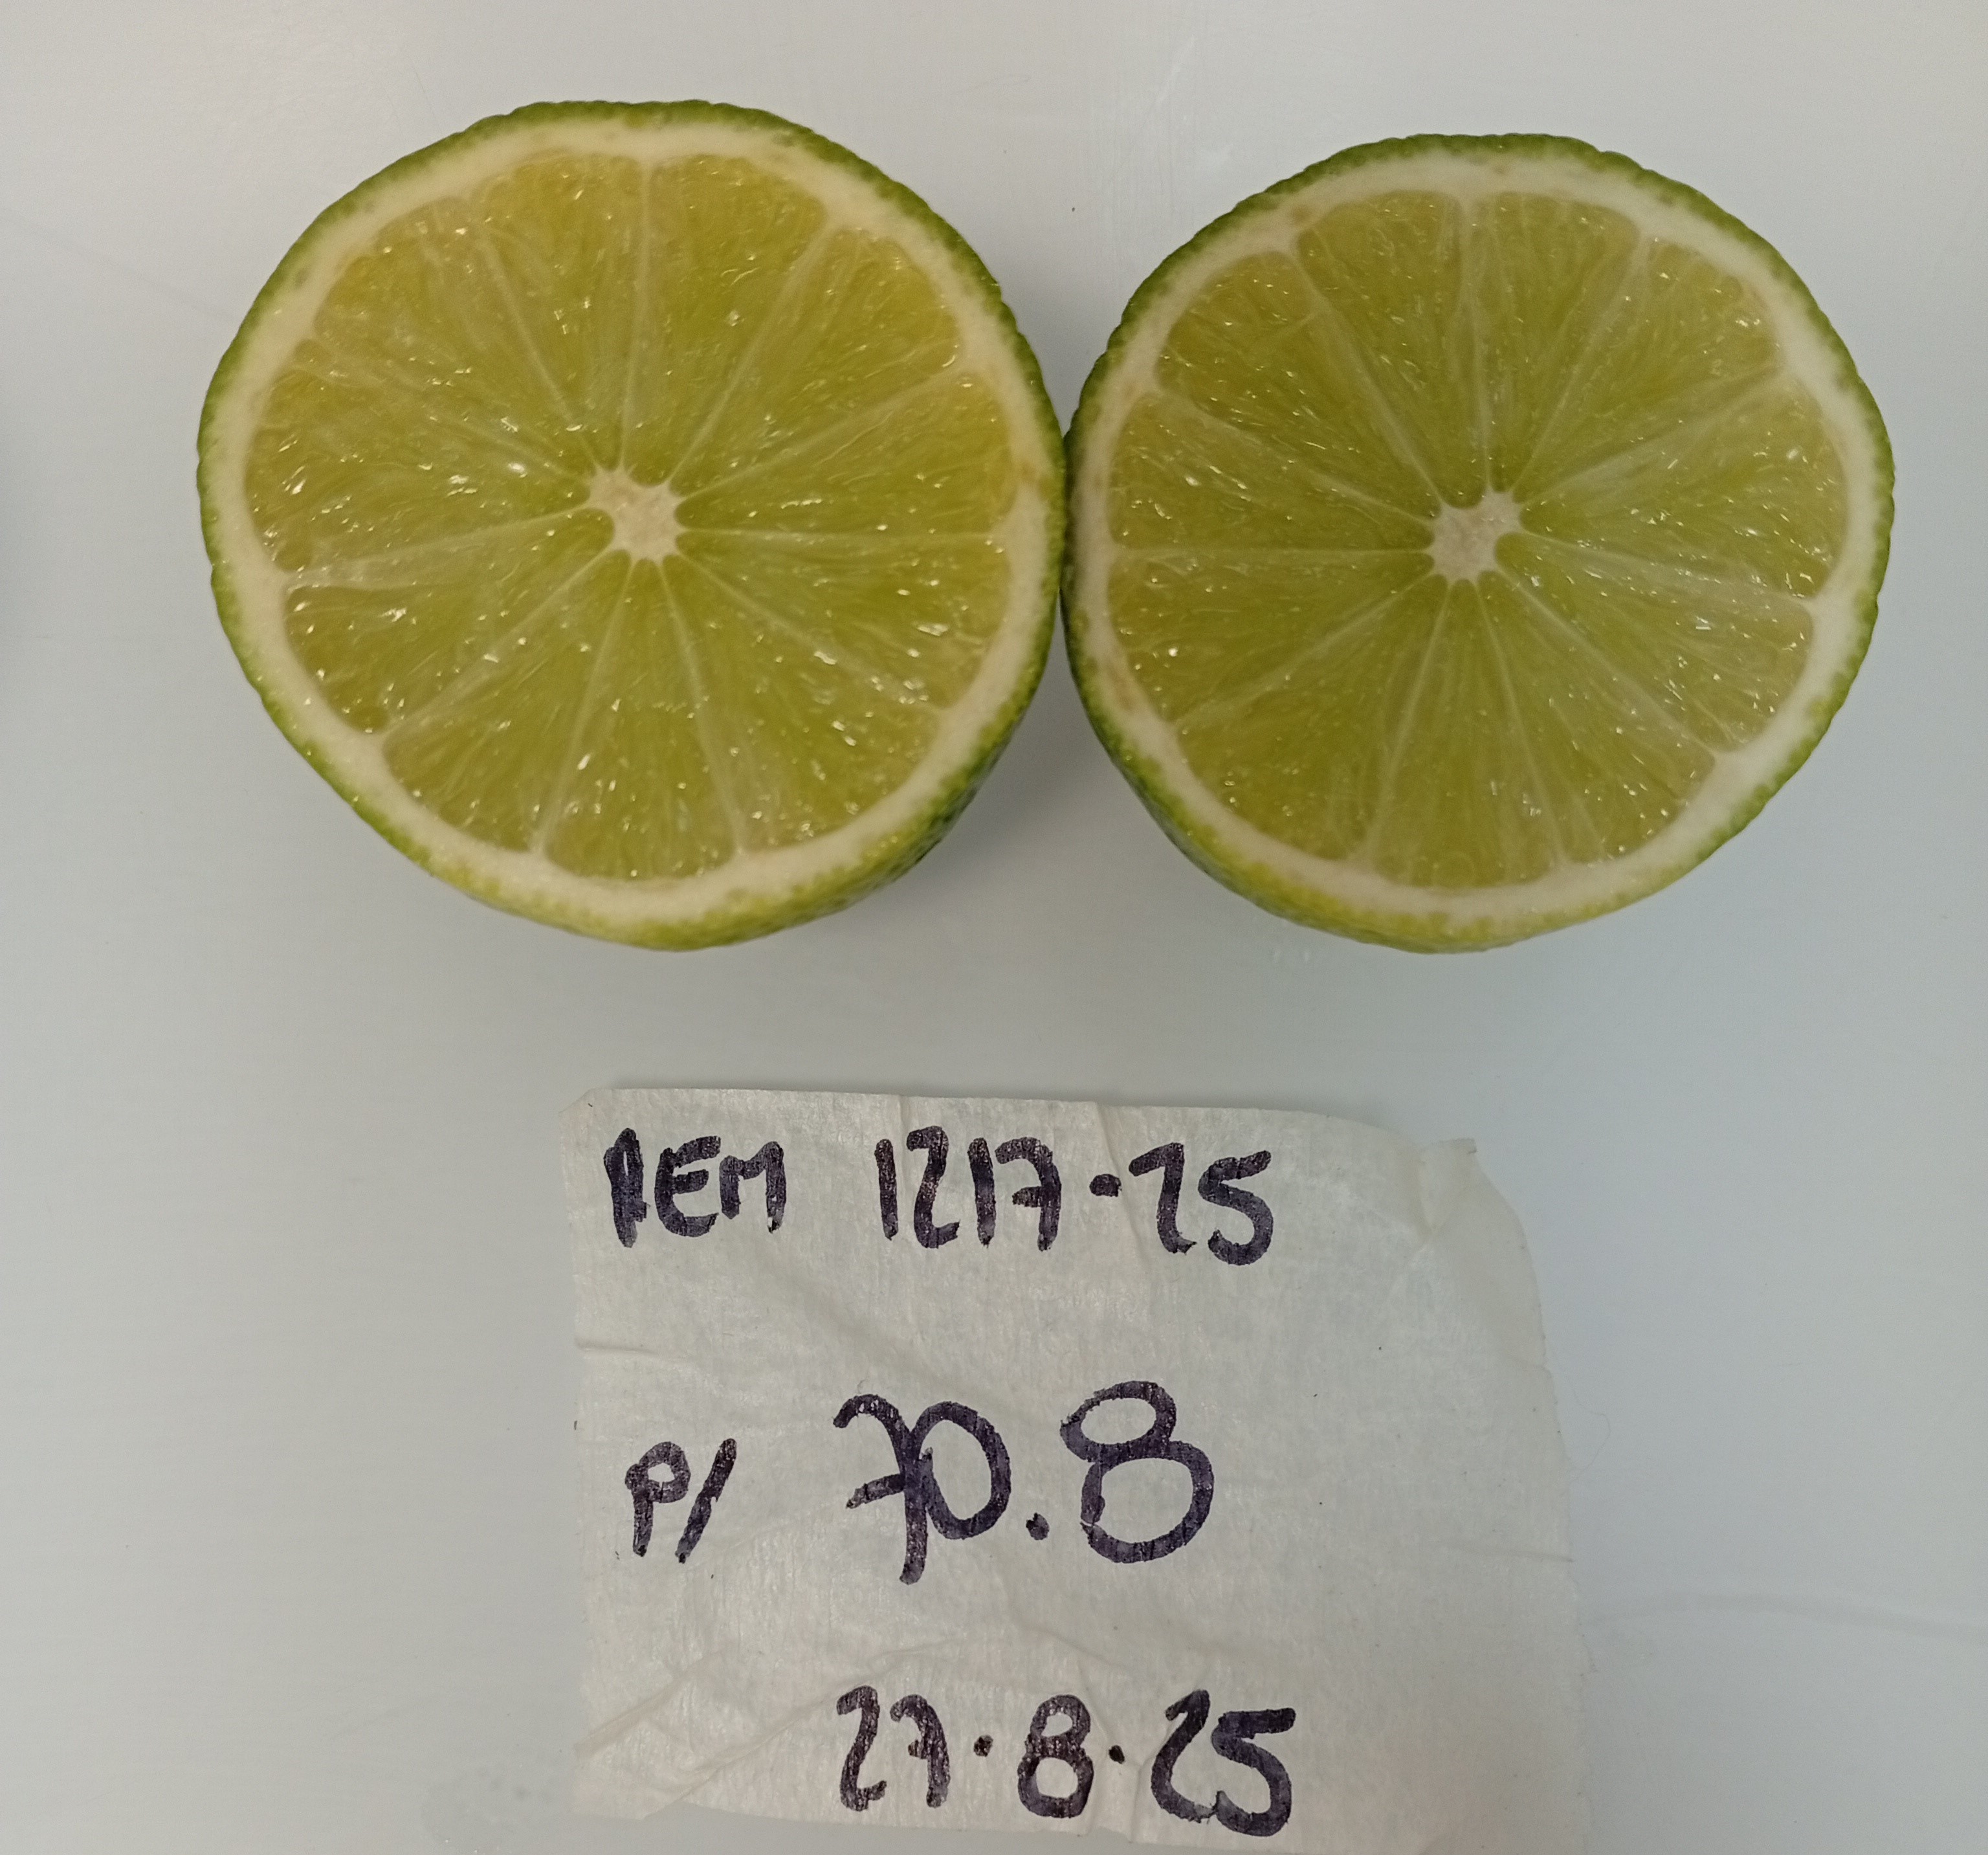 REM 1217.25
P/ 70.8
27.8.25